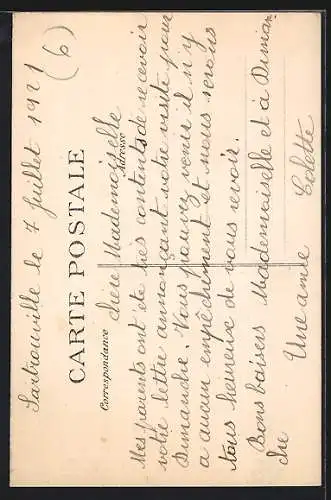 Sartrouville le 7 Juillet 1921
(6)
CARTE POSTALE
Correspondance
Adresse
Chère Mademoiselle
Mes parents ont été très contents de recevoir
votre lettre annonçant votre visite pour
Dimanche. Vous pouvez venir il n'y
a aucun empêchement et nous serons
tous heureux de vous revoir.
Bons baisers Mademoiselle et à Diman
che
Une amie
Colette